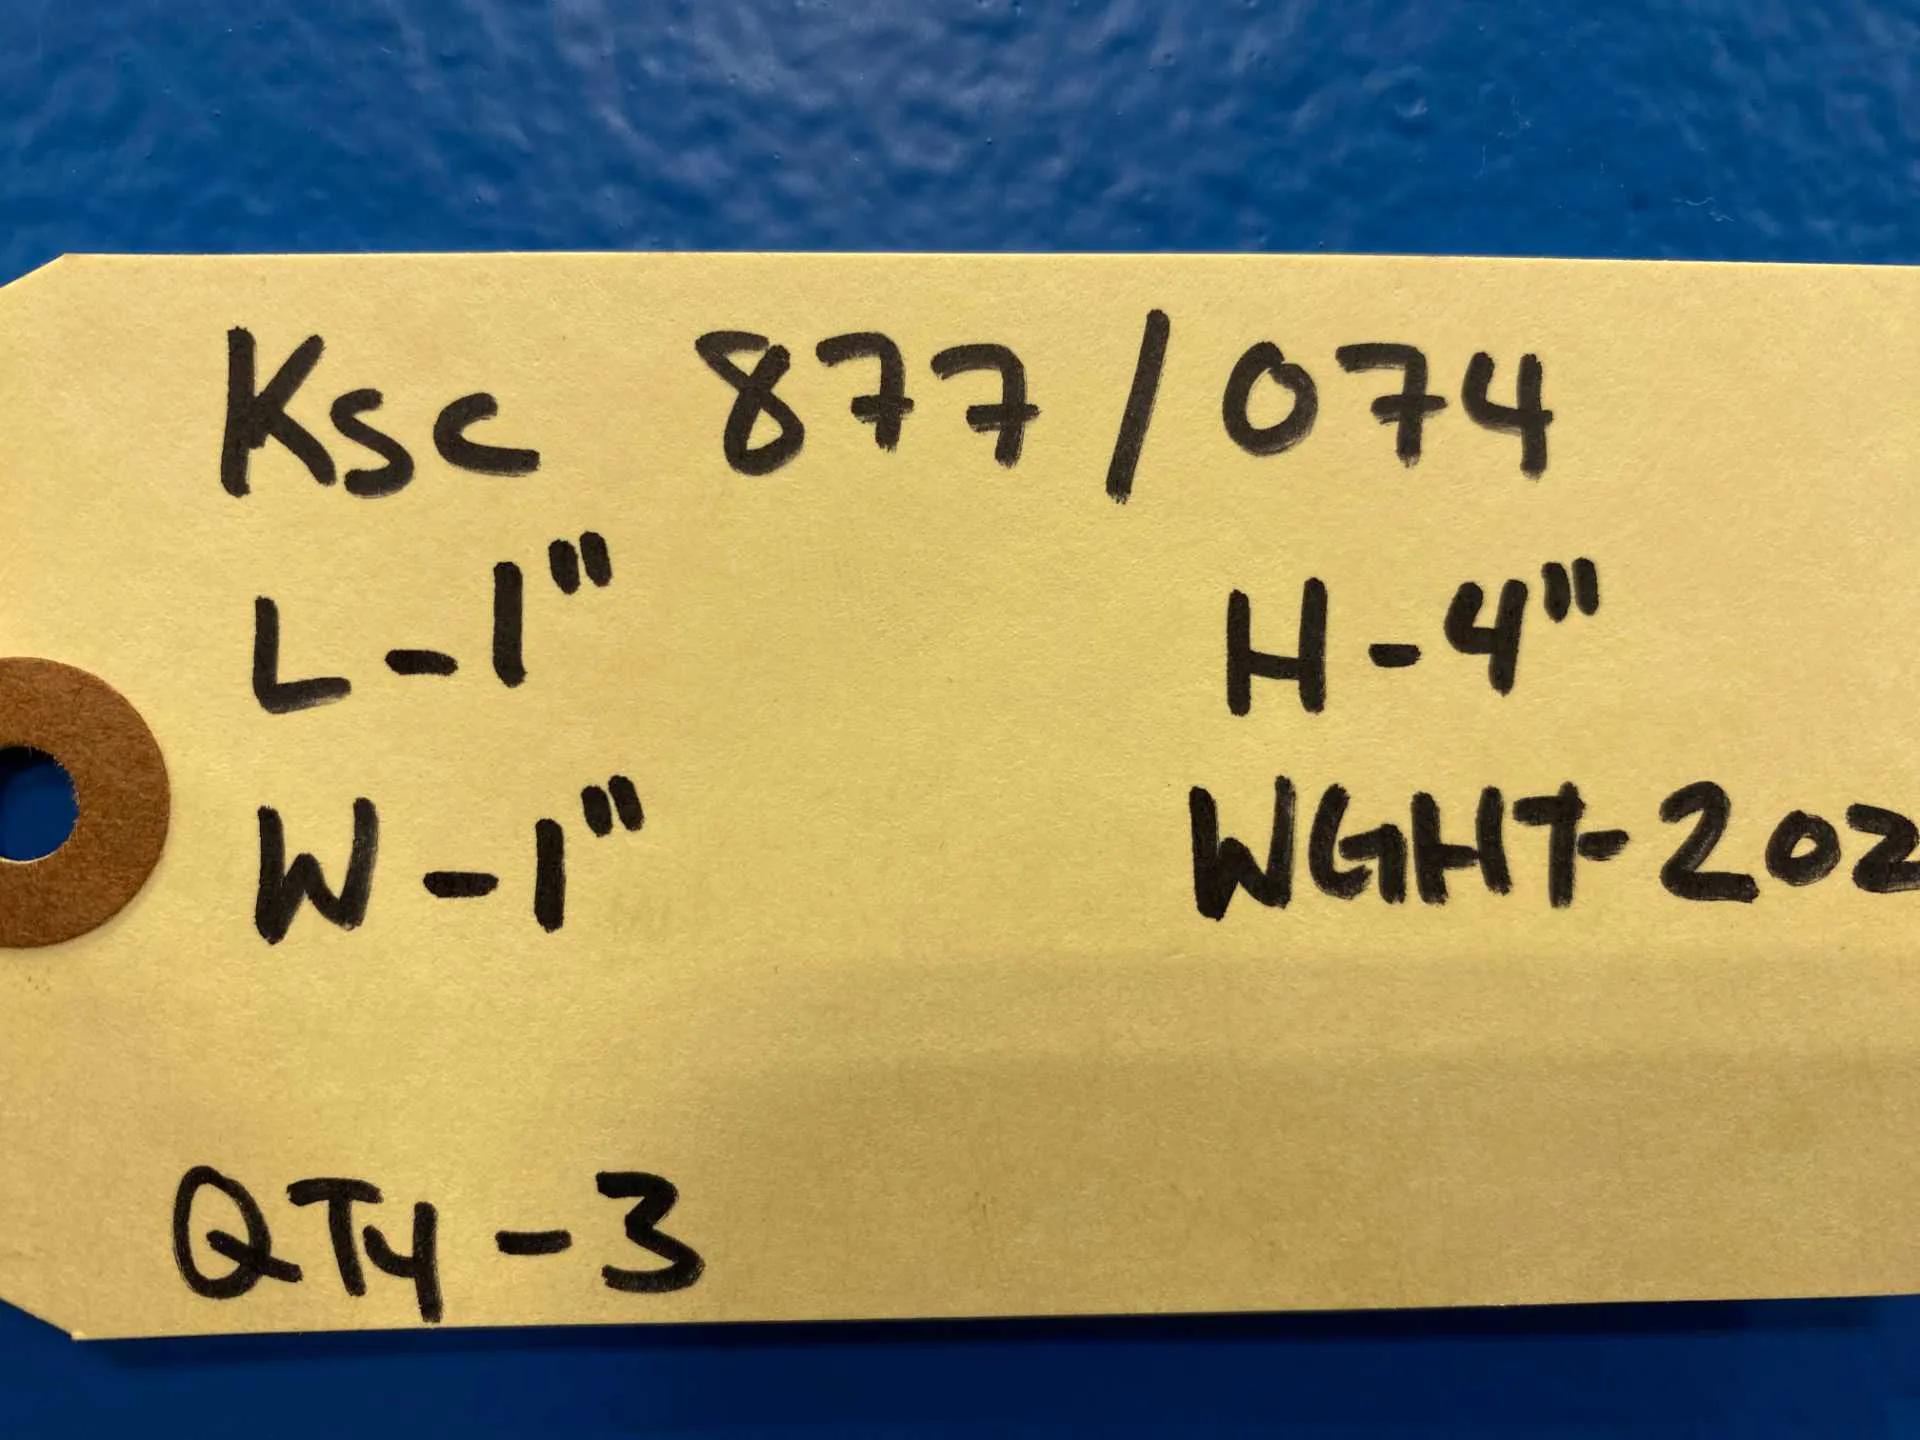 Ksc 877/074
L-1" H-4"
W-1" WGHT-2oz
QTy-3